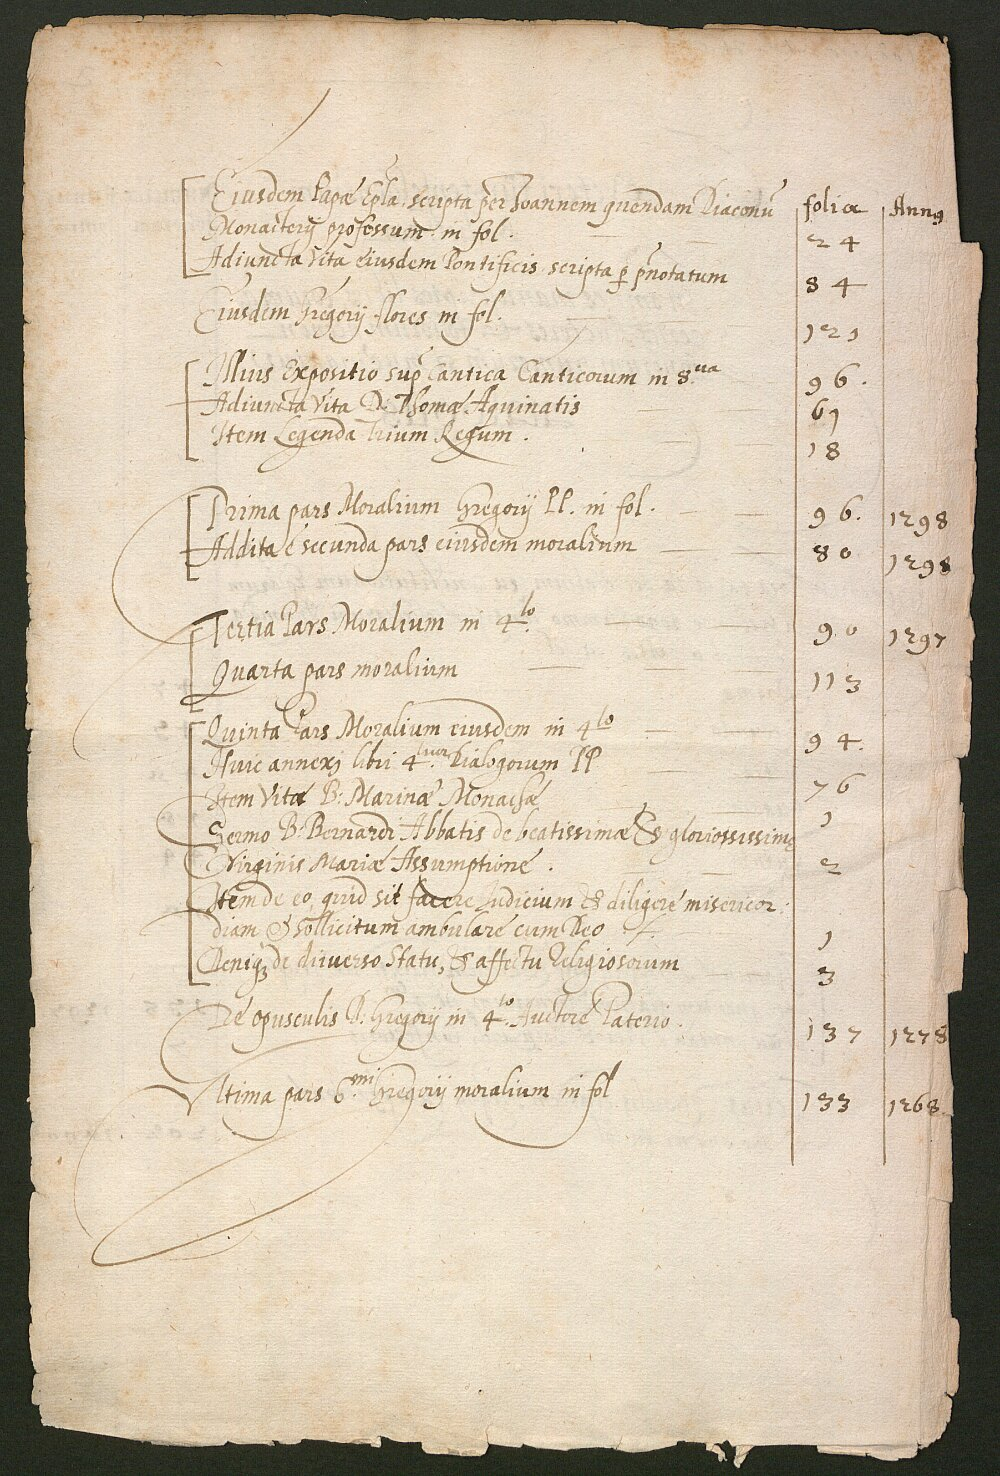 Eiusdem Papæ Epla scripta per Joannem quendam Diaconū folia Anng
Monasterij professum in fol. 24
Adiuncta Vita eiusdem Pontificis scripta p pnotatum 84
Eiusdem Gregorij flores in fol. 121
Illius Expositio sup Cantica Canticorum in 8.va 96.
Adiuncta Vita D. Thomæ Aquinatis 61
Item Legenda Trium Regum. 18
Prima pars Moralium Gregorij PP. in fol. 96. 1298
Addita e secunda pars eiusdem moralium 80 1298
Tertia Pars Moralium in 4.to 90 1297
Quarta pars moralium 113
Quinta Pars Moralium eiusdem in 4.to 94.
Huic annexi libri 4.tuor Dialogorum PP 76
Item Vitæ B: Marinæ Monachæ 1
Sermo B: Bernardi Abbatis de beatissimæ & gloriossissimę
Virginis Mariæ Assumptione. 2
Item de eo quid sit facere Iudicium & diligere misericor
diam & sollicitum ambulare cum Deo 1
Deniq; de diuerso statu, & affectu Religiosorum 3
De opusculis B. Gregorij in 4.to Auctore Paterio. 137 1278
Vltima pars B.mi Gregorij moralium in fol 133 1268